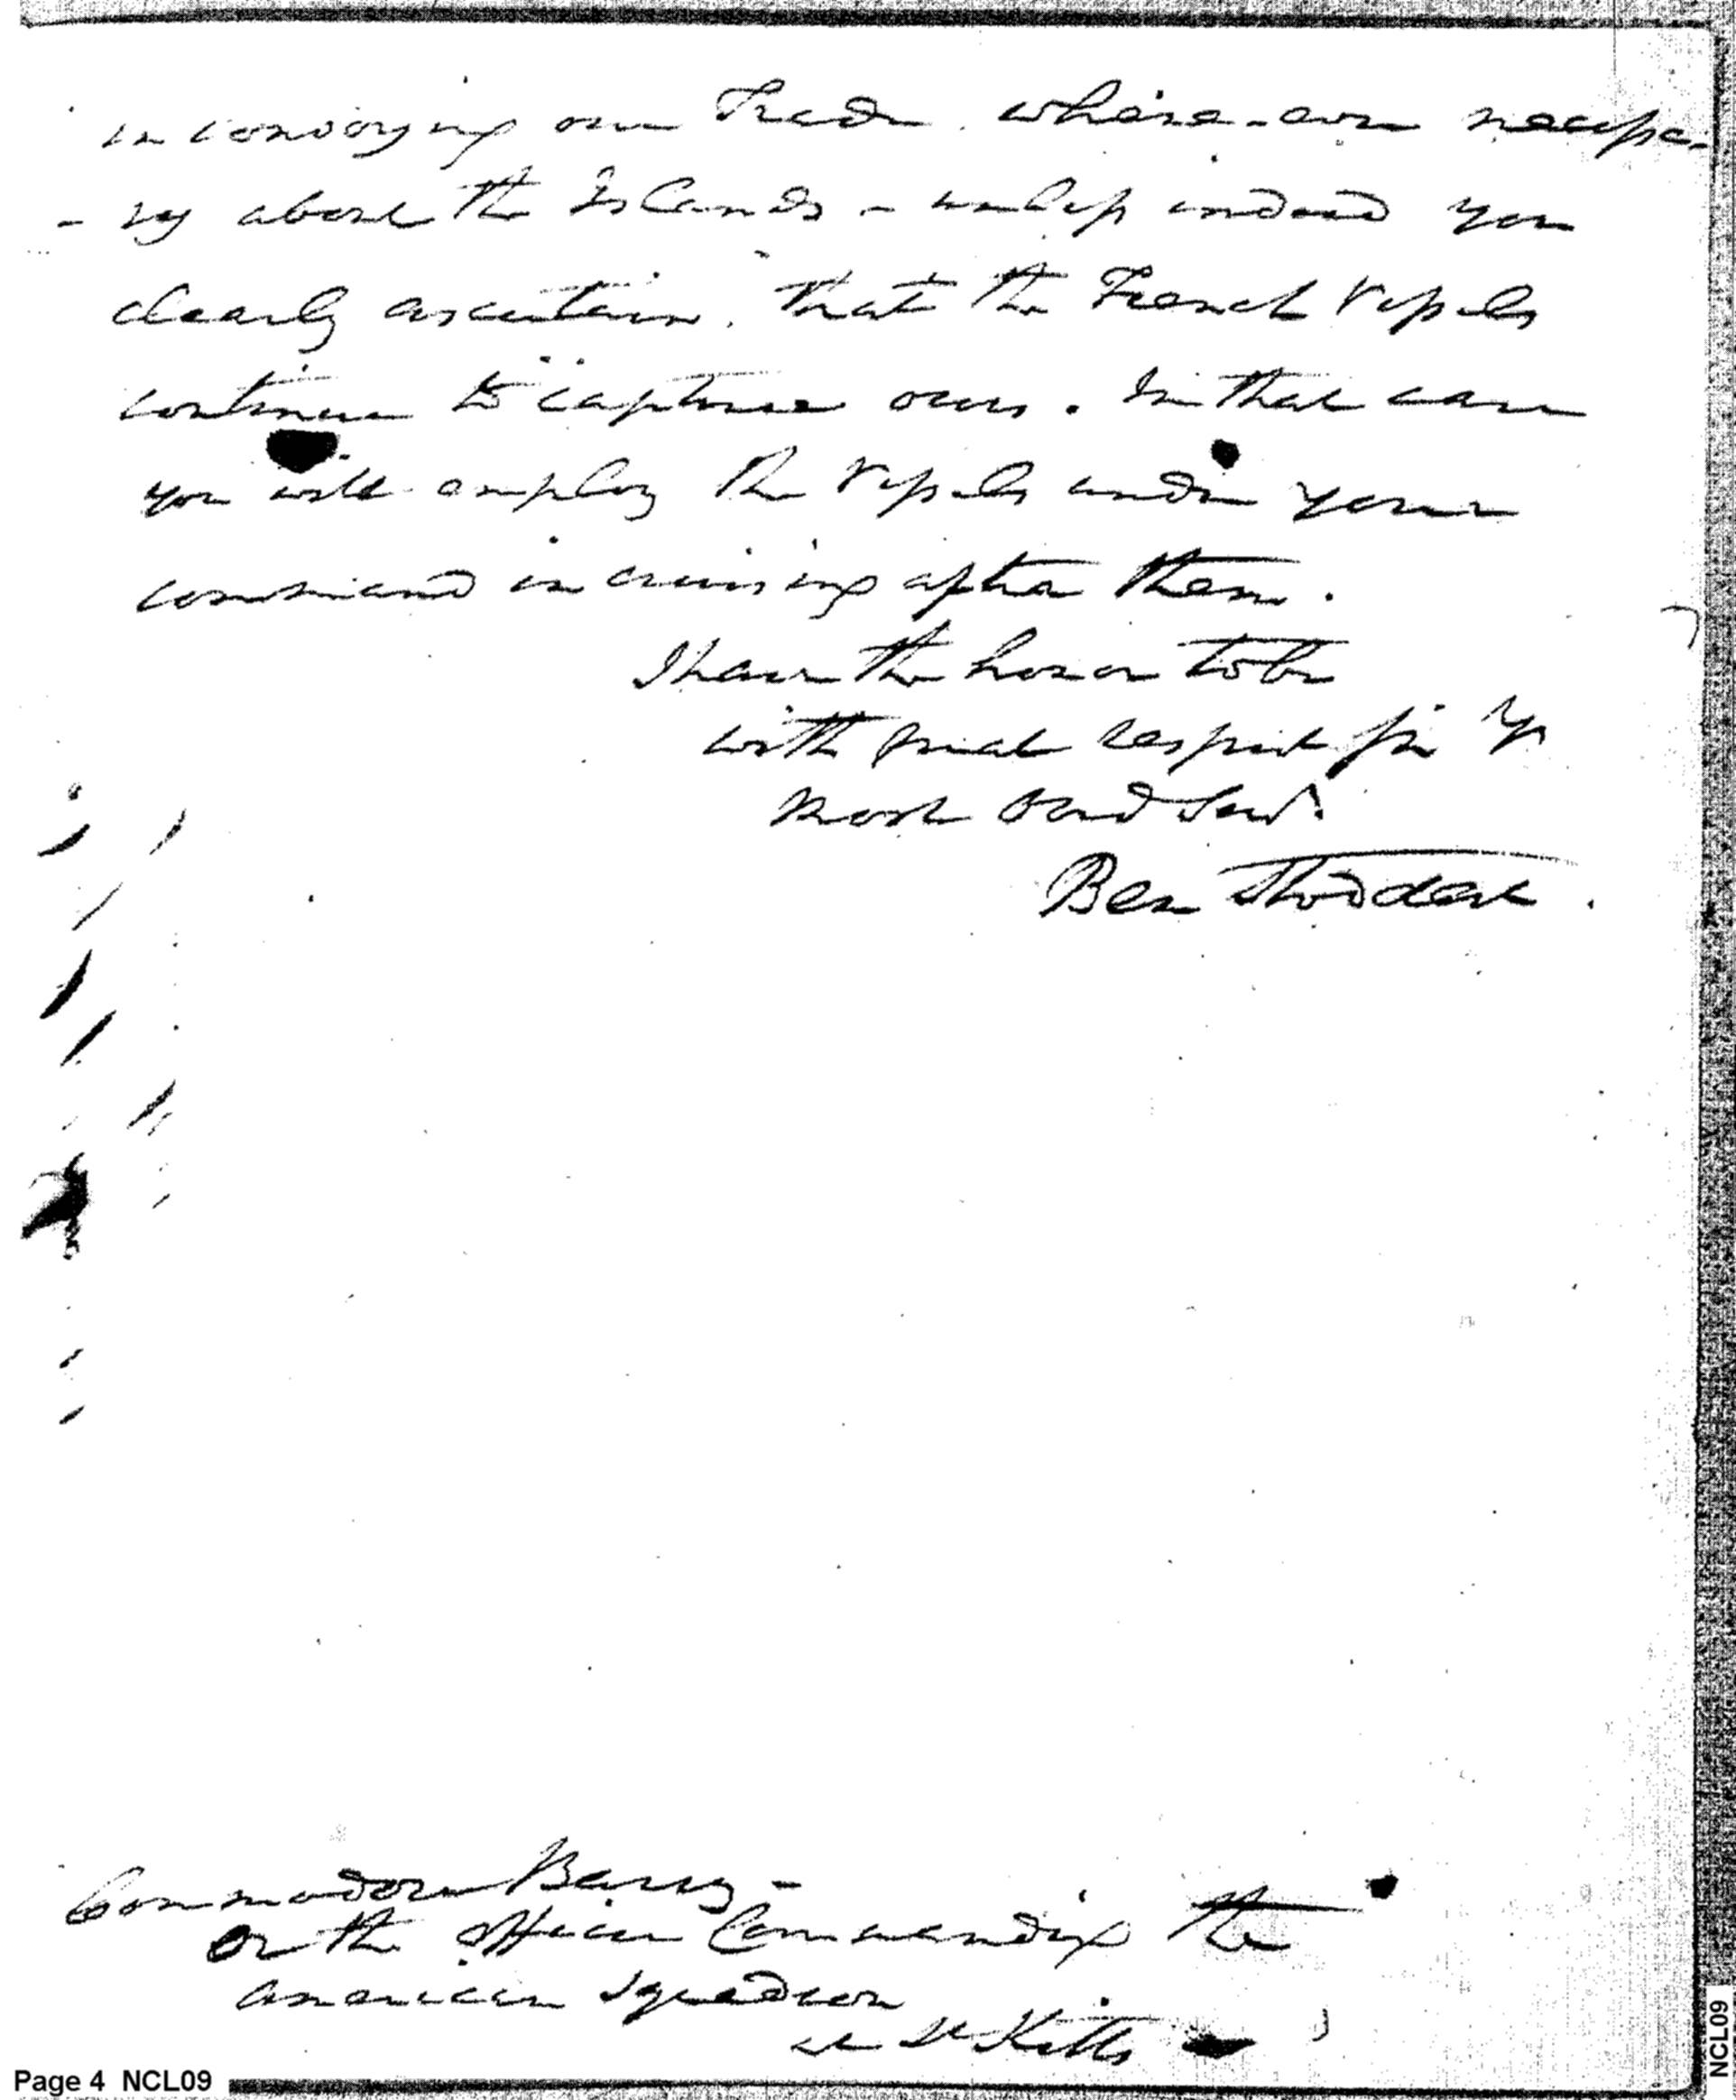 in convoying our Trade where-ever necessa-
- ry about the Islands - unless indeed you
clearly ascertain, that the French Vessels
continue to capture ours. In that case
you will employ the Vessels under your
command in cruising after them.
I have the honor to be
with great respect Sir Yr
most Obed Servt.
Ben Stoddert.
Commodore Barry -
Or the officer Commanding the
American Squadron
at St Kitts
Page 4 NCL09
NCL09